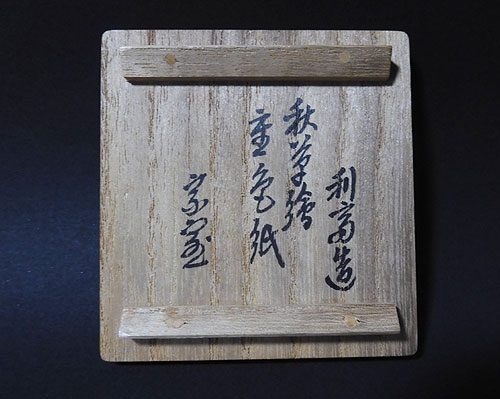 利斎造
秋草繪
重色紙
宗室